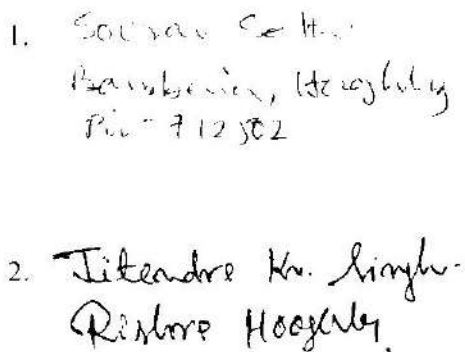 1. Sourav Sethi
Bansberia, Hooghly
Pin - 712502
2. Jitendre Kr. Singh.
Rishre Hooghly.